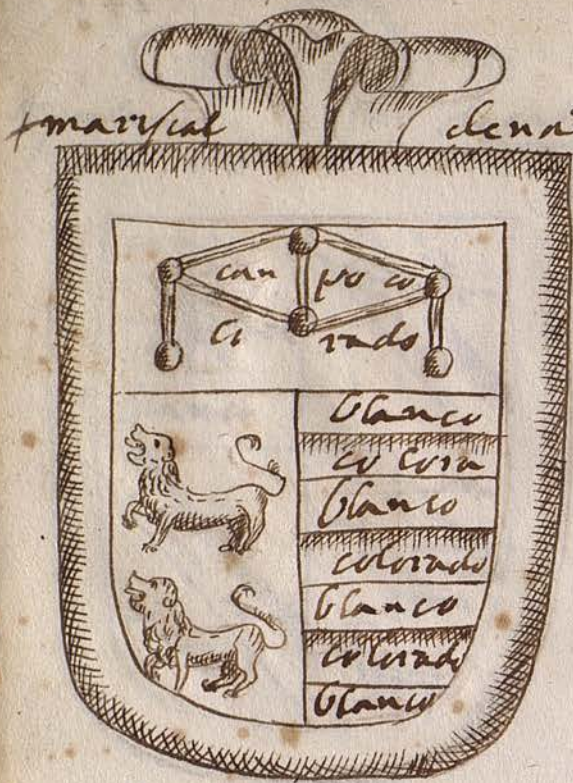 mariscal dena
can po co
lo rado
blanco
colora
blanco
colorado
blanco
colorado
blanco